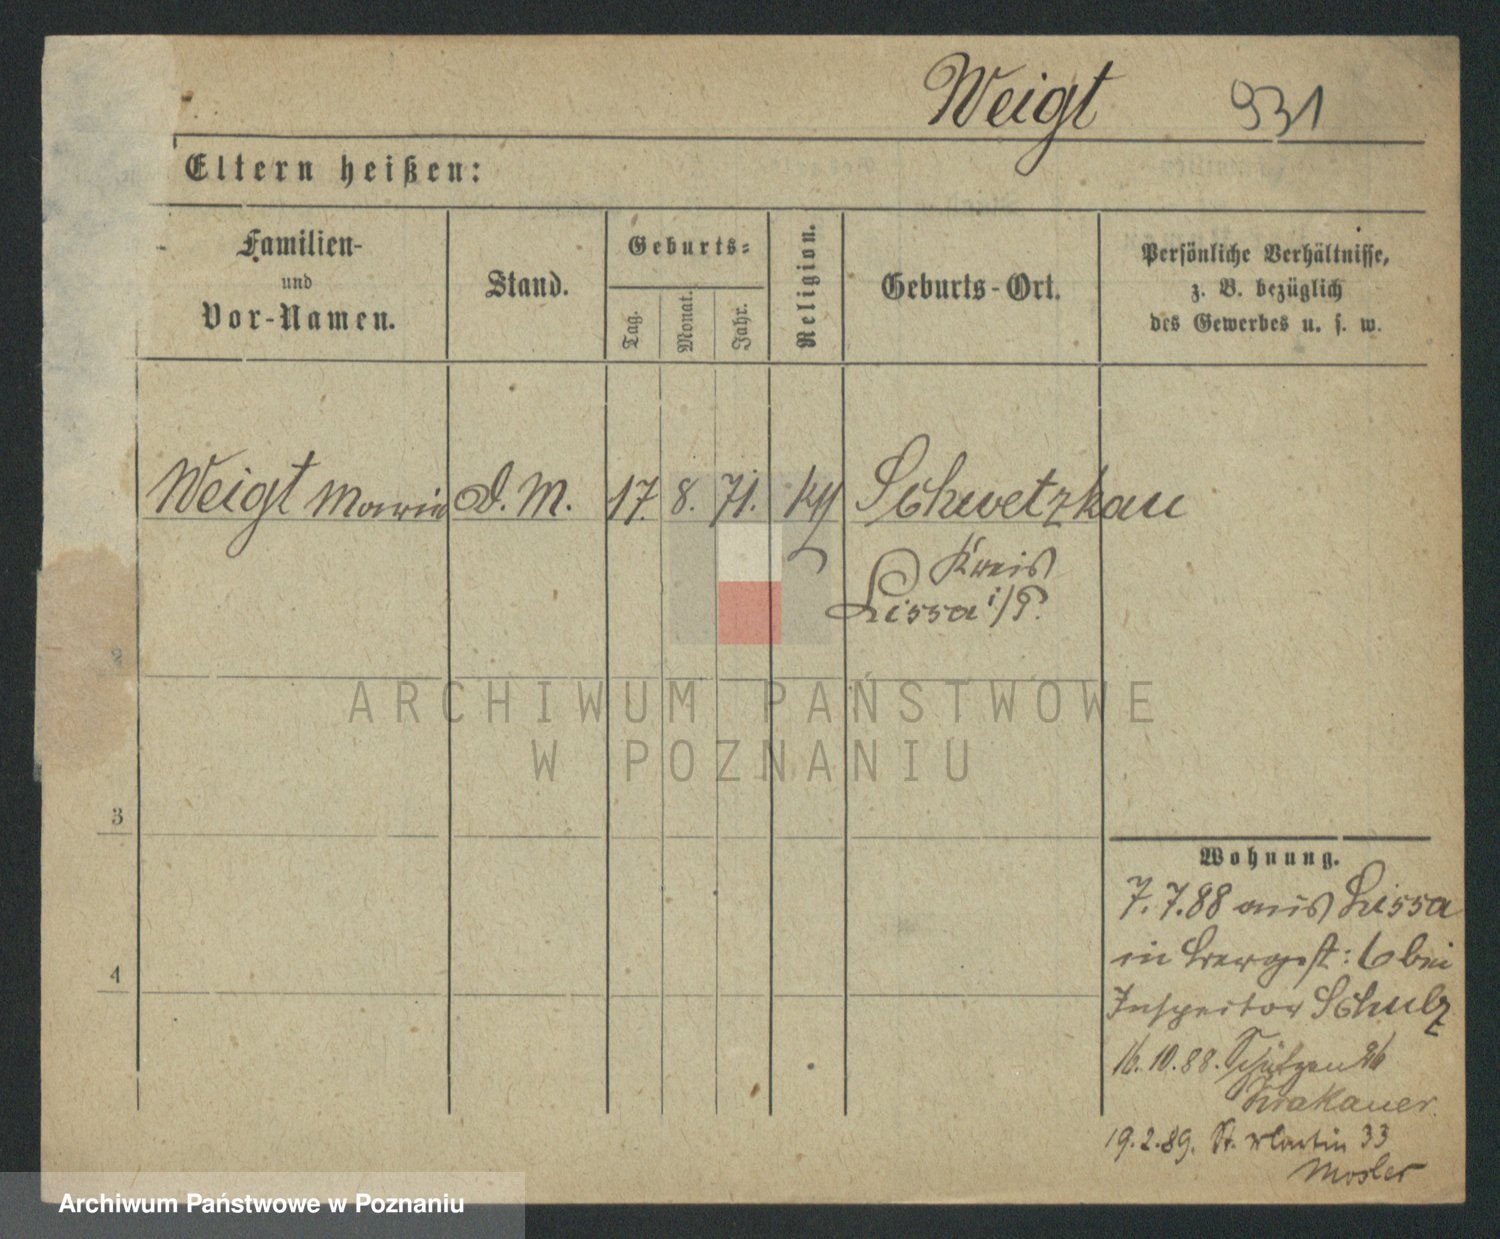 Weigt 931
Eltern heißen:
Familien-
und
Vor-Namen.
Stand.
Geburts-
Tag.
Monat.
Jahr.
Religion.
Geburts-Ort.
Persönliche Verhältnisse,
z. B. bezüglich
des Gewerbes u. s. w.
Weigt Marie D. M. 17. 8. 71. Schwetzkau
Kreis
Lissa i/P.
2
3
4
Wohnung.
7.7.88 aus Lissa
in Bergst: 6 bei
Inspector Schulz
16.10.88. Schützen 26
Krakauer
19.2.89. St. Martin 33
Mosler
ARCHIWUM PAŃSTWOWE
W POZNANIU
Archiwum Państwowe w Poznaniu